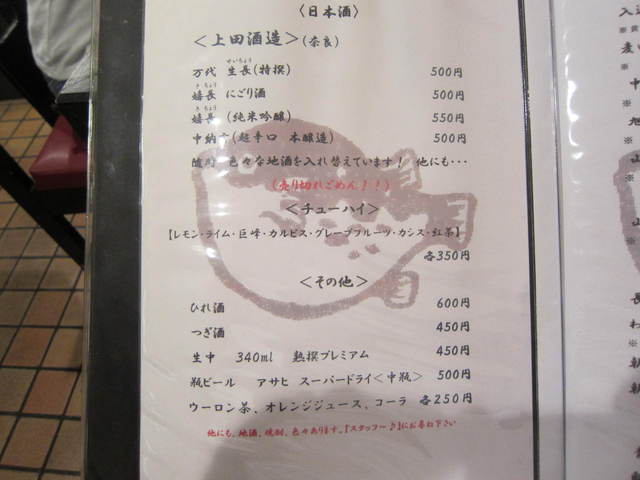 〈日本酒〉
＜上田酒造＞(奈良)
せいちょう
万代 生長(特撰) 500円
きちょう
嬉長 にごり酒 500円
きちょう
嬉長 (純米吟醸) 550円
中納言(超辛口 本醸造) 500円
随時 色々な地酒を入れ替えています！ 他にも･･･
(売り切れごめん！！)
＜チューハイ＞
【レモン・ライム・巨峰・カルピス・グレープフルーツ・カシス・紅茶】
各350円
＜その他＞
ひれ酒 600円
つぎ酒 450円
生中 340ml 熟撰プレミアム 450円
瓶ビール アサヒ スーパードライ＜中瓶＞ 500円
ウーロン茶、オレンジジュース、コーラ 各250円
他にも、地酒、焼酎、色々あります。『スタッフー♪』にお尋ね下さい